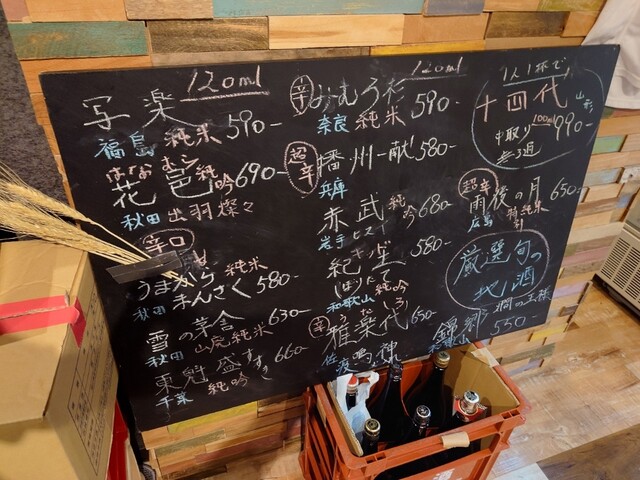 120ml
写楽
福島 純米 590-
はなおむら
花邑 純吟 690-
秋田 出羽燦々
辛口
うまから 純米
まんさく 580-
秋田
雪の茅舎 630-
秋田 山廃純米
東魁盛 660-
千葉 純吟
120ml
辛 みむろ杉
奈良 純米 590-
超辛 播州一献 580-
兵庫
赤武 純吟 680-
岩手
紀土 580-
しぼりたて 純吟
和歌山
うたしろ
辛 雅楽代 650-
佐渡 鳴神
1人1杯で
十四代 山形
中取り 100ml 990-
無過
超辛
雨後の月 650-
広島 特純米
厳選旬の
地酒
燗の王様
錦郷
550-